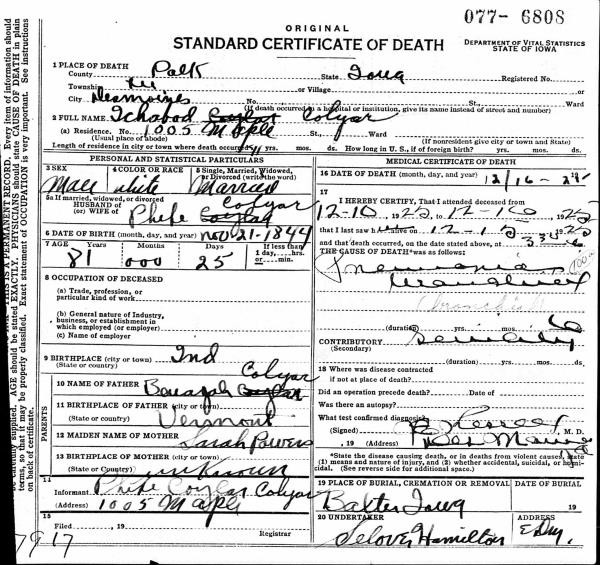 077- 6808
ORIGINAL
STANDARD CERTIFICATE OF DEATH
DEPARTMENT OF VITAL STATISTICS
STATE OF IOWA
1 PLACE OF DEATH
County Polk State Iowa Registered No.
Township or Village
City Desmoines No. St., Ward
(If death occurred in a hospital or institution, give its name instead of street and number)
2 FULL NAME Ichabod Colyar
(a) Residence. No. 1005 Maple St., Ward
(Usual place of abode) (If nonresident give city or town and State)
Length of residence in city or town where death occurred yrs. mos. ds. How long in U. S., if of foreign birth? yrs. mos. ds.
PERSONAL AND STATISTICAL PARTICULARS
3 SEX
Male
4 COLOR OR RACE
white
5 Single, Married, Widowed, or Divorced (write the word)
Married
5a If married, widowed, or divorced
HUSBAND of
(or) WIFE of Phebe Colyar
6 DATE OF BIRTH (month, day, and year) Nov 21-1844
7 AGE Years Months Days If less than 1 day, hrs. or min.
81 000 25
8 OCCUPATION OF DECEASED
(a) Trade, profession, or particular kind of work
(b) General nature of Industry, business, or establishment in which employed (or employer)
(c) Name of employer
9 BIRTHPLACE (city or town) Ind
(State or country)
PARENTS
10 NAME OF FATHER Colyar
11 BIRTHPLACE OF FATHER (city or town)
(State or country) Vermont
12 MAIDEN NAME OF MOTHER Sarah Powers
13 BIRTHPLACE OF MOTHER (city or town)
(State or Country) unknown
14
Informant Phebe Colyar
(Address) 1005 Maple
15
Filed , 19
Registrar
7917
MEDICAL CERTIFICATE OF DEATH
16 DATE OF DEATH (month, day, and year) 12/16-25
17
I HEREBY CERTIFY, That I attended deceased from
12-10 1925 to 12-16 1925
that I last saw h alive on 12-15 1925
and that death occurred, on the date stated above, at
THE CAUSE OF DEATH* was as follows:
Pneumonia
(duration) yrs. mos. ds.
CONTRIBUTORY Senility
(Secondary)
(duration) yrs. mos. ds.
18 Where was disease contracted
if not at place of death?
Did an operation precede death? Date of
Was there an autopsy?
What test confirmed diagnosis?
(Signed) M. D.
, 19 (Address) Des Moines
*State the disease causing death, or in deaths from violent causes, state (1) means and nature of injury, and (2) whether accidental, suicidal, or homicidal. (See reverse side for additional space.)
19 PLACE OF BURIAL, CREMATION OR REMOVAL DATE OF BURIAL
Baxter Iowa 19
20 UNDERTAKER ADDRESS
Selover Hamilton